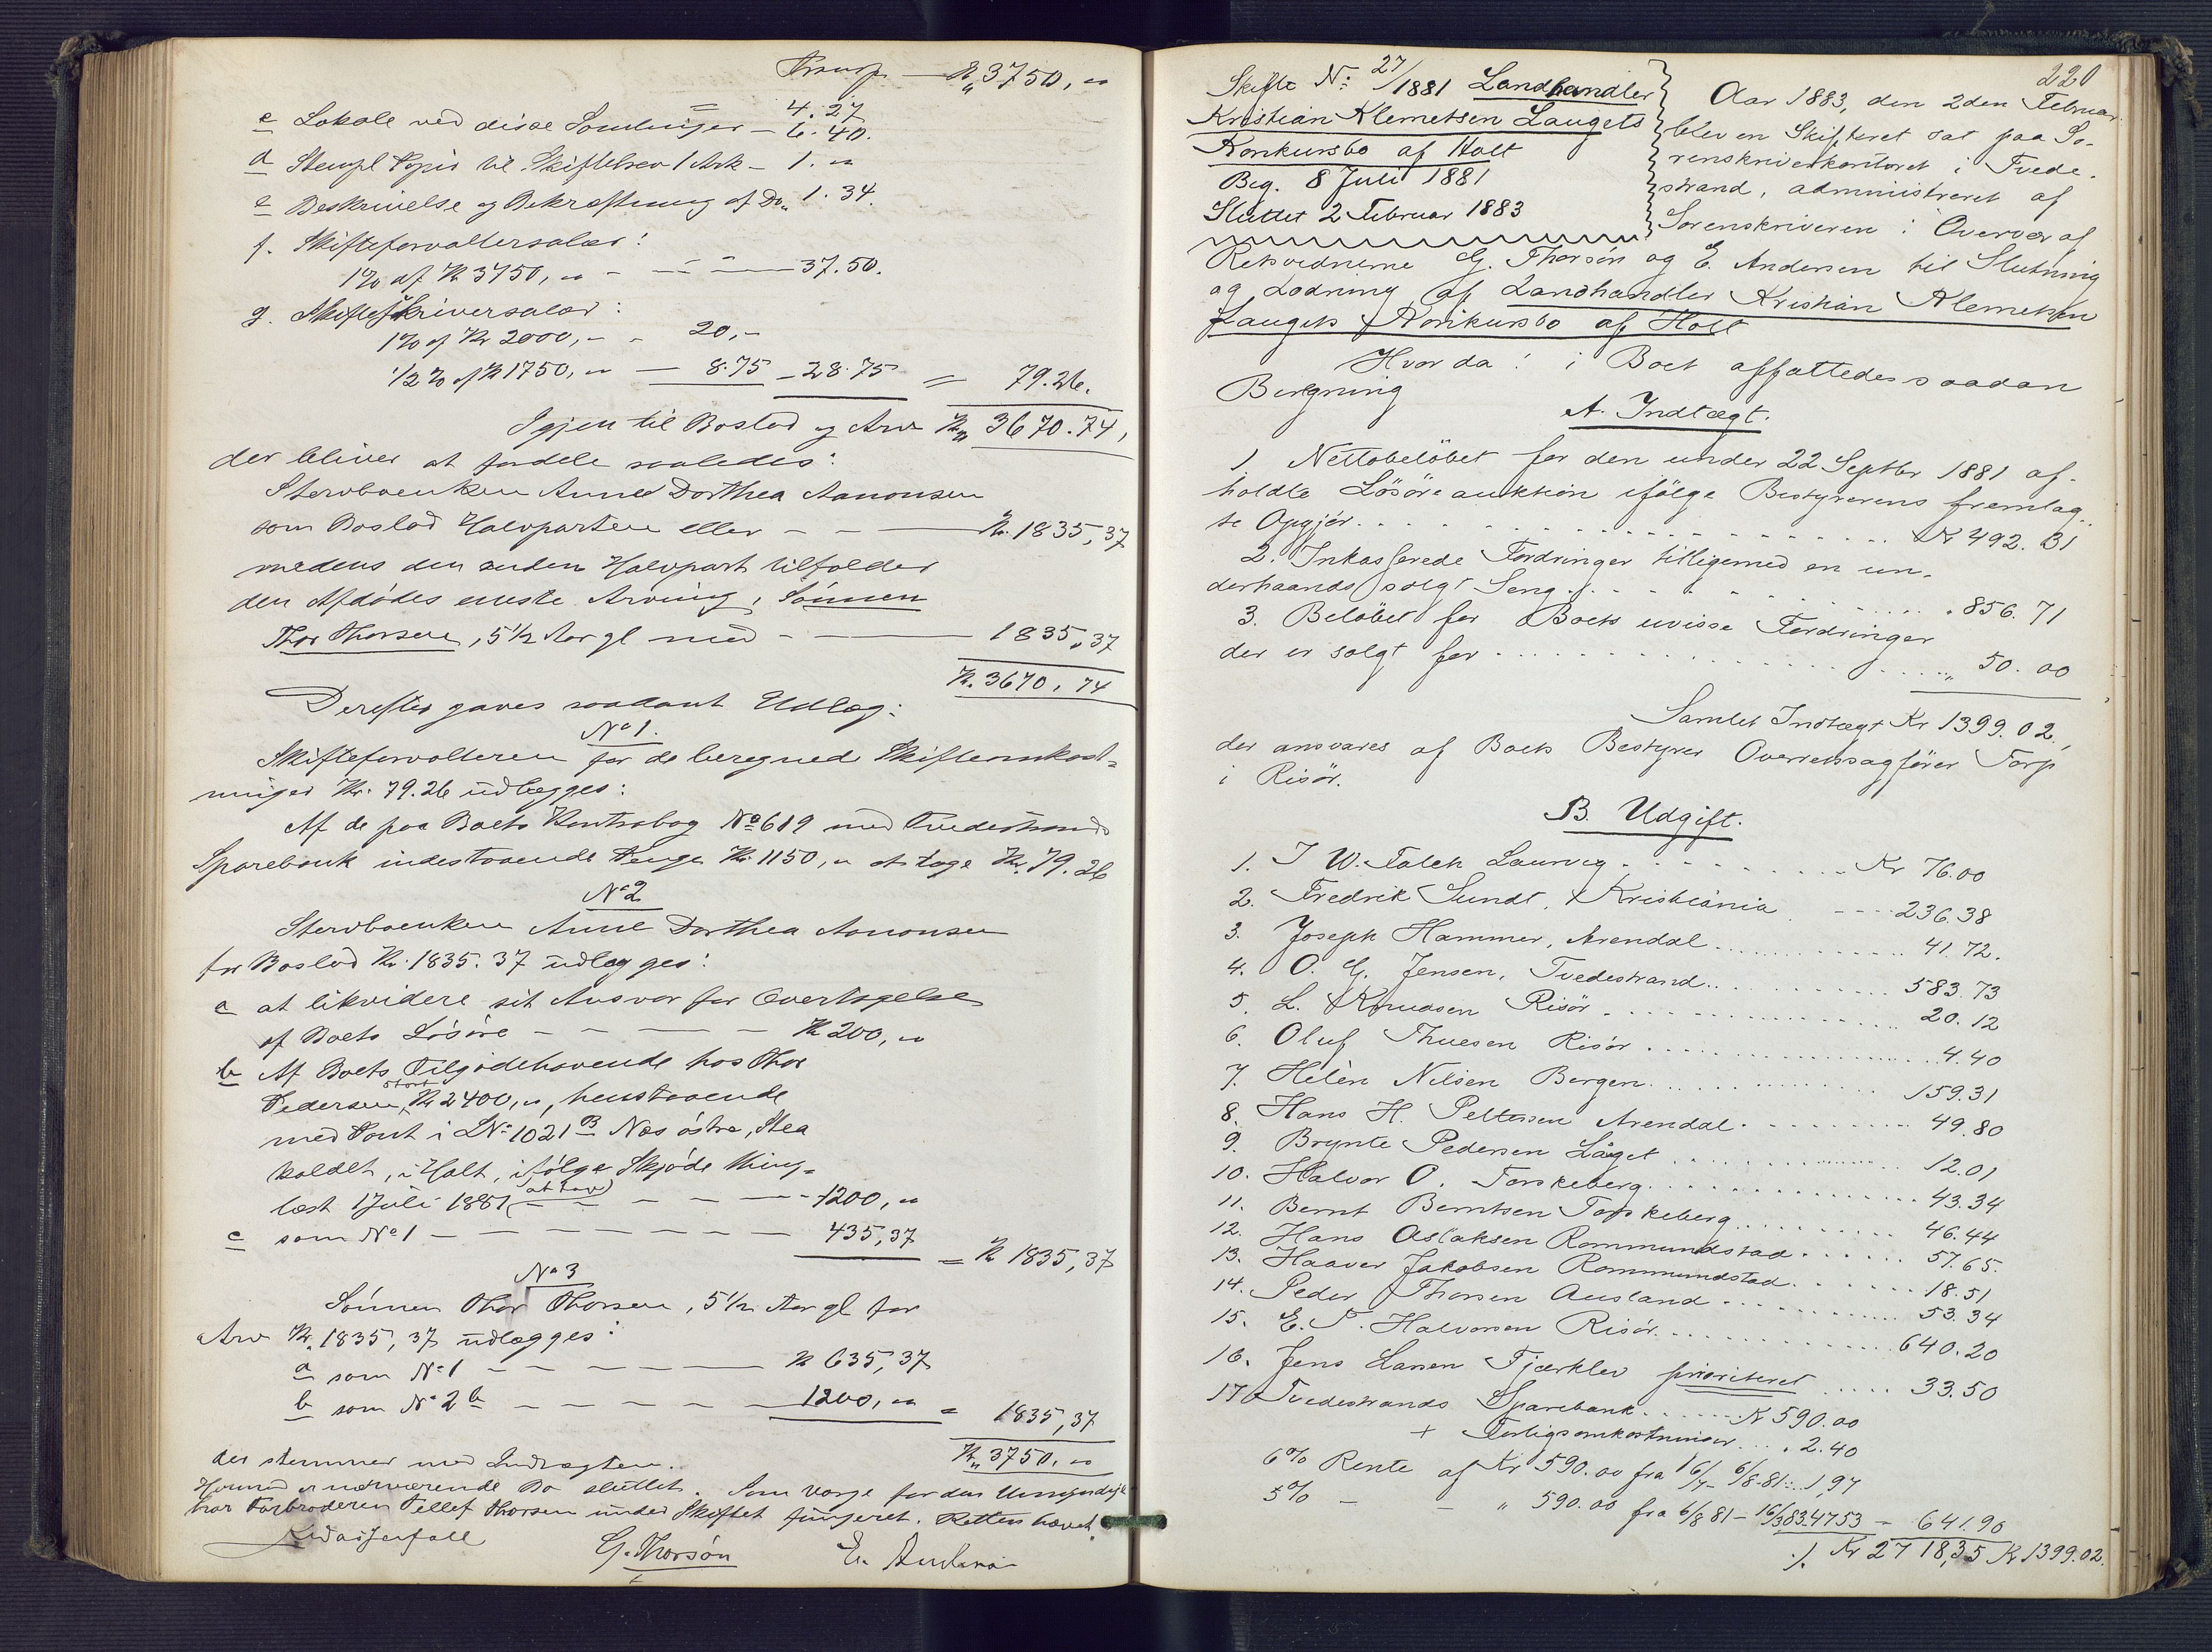 Transp. — Kr 3750, „
4. 27
c Lokale ved disse Samlinger — 6. 40.
d Stempl Papir til Skiftebrev 1 Ark — 1. „
e Beskrivelse og Bekræftning af Do „ 1. 34.
f. Skifteforvaltersalær:
1% af Kr 3750, „ - — — — 37.50.
g. Skifteskriversalær:
1% af Kr 2000, - - 20, -
1/2 % af Kr 1750, „ — 8.75 — 28.75 = 79.26.
Igjen til Boslod og Arv Kr 3670.74,
der bliver at fordele saaledes:
Stervboenken Anne Dorthea Aanonsen
som Boslod Halvparten eller — — — Kr. 1835,37
medens den anden Halvpart tilfalder
den Afdødes eneste Arving, Sønnen
Thor Thorsen, 5 1/2 Aar gl med - — 1835,37
Kr. 3670, 74
Derefter gaves saadant Udlæg:
No 1.
Skifteforvalteren for de beregnede Skifteomkost=
ninger Kr. 79.26 udlægges:
Af de paa Boets Kontrabog No 619 med Tvedestrands
Sparebank indestaaende Penge Kr. 1150, „ at tage Kr. 79.26
No 2
Stervboenken Anne Dorthea Aanonsen
for Boslod Kr. 1835. 37 udlægges:
a at likvidere sit Ansvar for Overtagelse
af Boets Løsøre — — — — Kr 200, „
b Af Boets Tilgodehavende hos Thor
Pedersen, stort Kr 2400, „, henstaaende
med Pant i LNo 1021 B Næs østre, Stea
kaldet, i Holt, ifølge Skjøde thing=
læst 1 Juli 1881, at tage — — — — 1200, „
c som No 1 — — — — — — 435,37
= Kr 1835,37
No 3
Sønnen Thor Thorsen, 5 1/2 Aar gl for
Arv Kr. 1835, 37 udlægges:
a som No 1 — — — — Kr 635,37
b som No 2 b — — — — — 1200, „ = 1835,37
Kr. 3750, „
der stemmer med Indtægten.
Hermed er nærværende Bo sluttet. Som Værge for den Umyndige
har Farbroderen Tellef Thorsen under Skiftet fungeret. Retten hævet.
G. Thorsøn E. Andersen
220
Skifte No 27/1881 Landhandler
Kristian Klemetsen Laugets
Konkursbo af Holt
Beg. 8 Juli 1881
Sluttet 2 Februar 1883
Aar 1883, den 2den Februar
blev en Skifteret sat paa So-
renskriverkontoret i Tvede-
strand, administreret af
Sorenskriveren i Overvær af
Retsvidnerne G. Thorsøn og E. Andersen til Slutning
og Lodning af Landhandler Kristian Klemetsen
Laugets Konkursbo af Holt
Hvorda: i Boet affattedes saadan
Beregning
A. Indtægt.
1. Nettobeløbet for den under 22 Septbr 1881 af-
holdte Løsøreauktion ifølge Bestyrerens fremlag-
te Opgjør. . . . . . . . Kr 492. 31
2. Inkasserede Fordringer tilligemed en un-
derhaands solgt Seng . . . . . . „ 856. 71
3. Beløbet for Boets uvisse Fordringer
der er solgt for . . . . . . . . „ 50. 00
Samlet Indtægt Kr 1399. 02,
der ansvares af Boets Bestyrer Overretssagfører Torp
i Risør.
B. Udgift.
1. I W. Falch Laurvig . . . . . Kr 76.00
2. Fredrik Sundt, Kristiania . - - - 236.38
3. Joseph Hammer, Arendal . . . . . 41. 72.
4. O. G. Jensen, Tvedestrand . . . . . 583.73
5. L. Knudsen Risør . . . . . 20. 12
6. Oluf Thuesen Risør . . . . . 4.40
7. Helèn Nilsen Bergen . . . . . 159.31
8. Hans H. Pettersen Arendal . . . . . 49.80
9. Brynte Pedersen Låget . . . . . 12.01
10. Halvor O. Torskeberg . . . . . 43.34
11. Bernt Berntsen Torskeberg . . . . . 46.44
12. Hans Aslaksen Rommundstad . . . . . 57.65.
13. Haaver Jakobsen Rommundstad . . . . . 18.51
14. Peder Thorsen Ausland . . . . . 53.34
15. E. T. Halvorsen Risør . . . . . 640.20
16. Jens Lanen Fjærklev prioriteret . . . . . 33.50
17 Tvedestrands Sparebank . . . . . Kr 590.00
+ Forligsomkostninger . . . „ 2.40
6% Rente af Kr 590.00 fra 16/7 - 6/8-81 : 1,97
5% — — „ 590.00 fra 6/8 81 - 16/3 83 47 53 — 641.90
./. Kr 2718,35 Kr 1399.02.